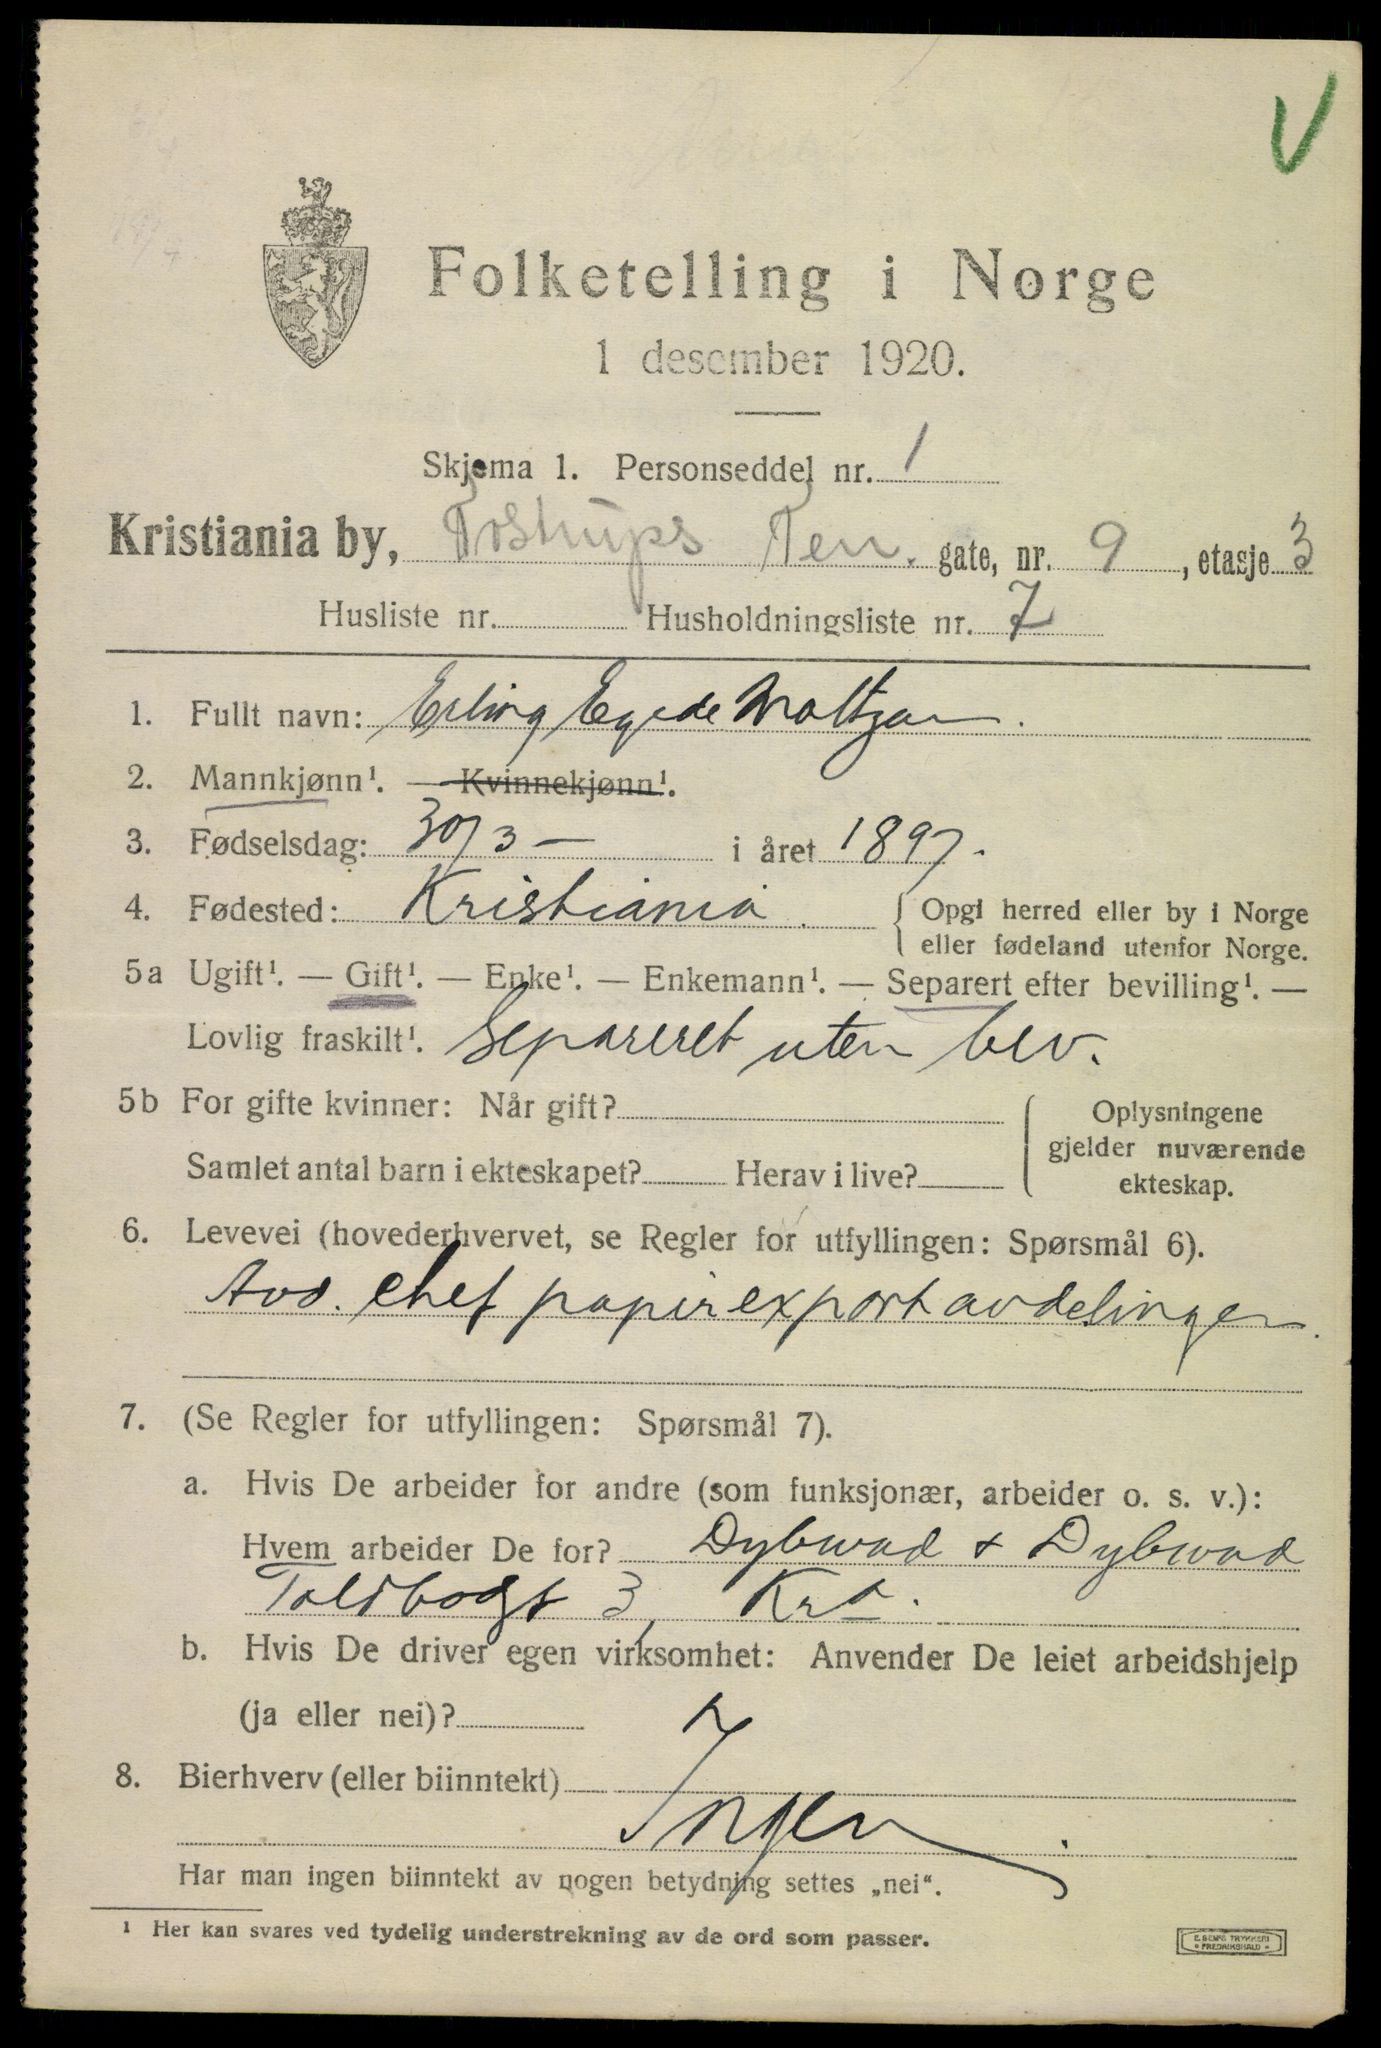 V
Folketelling i Norge
1 desember 1920.
Skjema 1. Personseddel nr. 1
Kristiania by, Tostrups Terr. gate, nr. 9, etasje 3
Husliste nr. Husholdningsliste nr. 7
1. Fullt navn: Erling Egede Moltzau.
2. Mannkjønn¹. — Kvinnekjønn¹.
3. Fødselsdag: 30/3 — i året 1897.
4. Fødested: Kristiania. { Opgi herred eller by i Norge
eller fødeland utenfor Norge.
5a Ugift¹. — Gift¹. — Enke¹. — Enkemann¹. — Separert efter bevilling¹. —
Lovlig fraskilt¹. Separeret uten bev.
5b For gifte kvinner: Når gift? { Oplysningene
gjelder nuværende
Samlet antal barn i ekteskapet? Herav i live? ekteskap.
6. Levevei (hovederhvervet, se Regler for utfyllingen: Spørsmål 6).
Avd. chef papirexportavdelingen.
7. (Se Regler for utfyllingen: Spørsmål 7).
a. Hvis De arbeider for andre (som funksjonær, arbeider o. s. v.):
Hvem arbeider De for? Dybwad + Dybwad
Toldbodgt 3, Kra.
b. Hvis De driver egen virksomhet: Anvender De leiet arbeidshjelp
(ja eller nei)?
8. Bierhverv (eller biinntekt)
Ingen.
Har man ingen biinntekt av nogen betydning settes „nei“.
¹ Her kan svares ved tydelig understrekning av de ord som passer.
E. SEMS TRYKKERI
• FREDRIKSHALD •